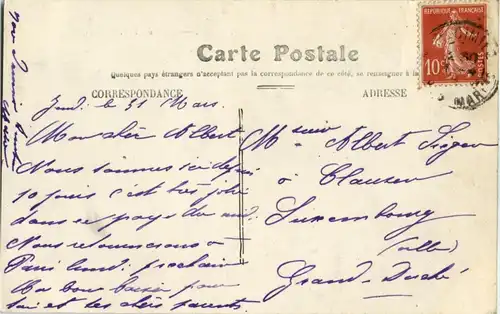 Carte Postale
Quelques pays étrangers n'acceptant pas la correspondance de ce côté, se renseigner à la
CORRESPONDANCE
ADRESSE
RÉPUBLIQUE FRANÇAISE
10 c
POSTES
Jeudi le 31 Mars.
Mon cher Albert
Nous sommes ici depuis
10 jours c'est très joli
dans ce pays du midi
Nous retournerons à
Paris lundi prochain
Un bon baiser pour
toi et tes chers parents.
Monsieur Albert
à Clausen
Luxembourg
(ville)
Grand-Duché